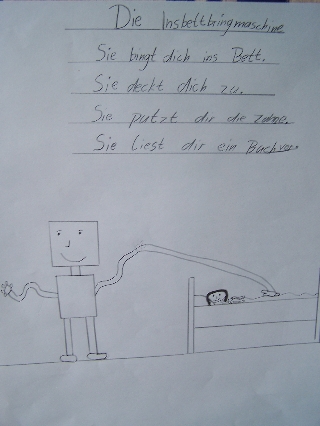 Die Insbettbringmaschine
Sie bingt dich ins Bett.
Sie deckt dich zu.
Sie putzt dir die Zähne.
Sie liest dir ein Buch vor.